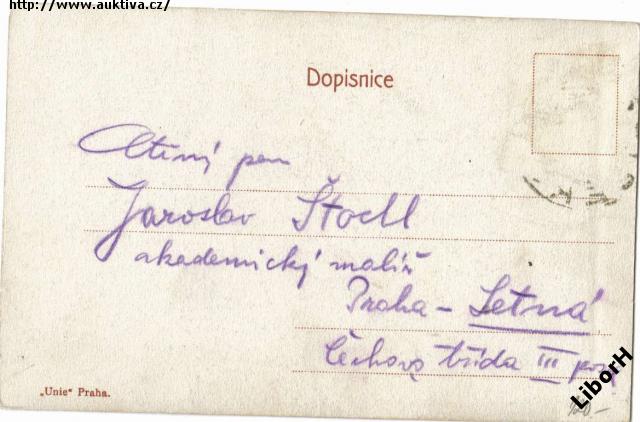 http://www.auktiva.cz/
Dopisnice
Ctěný pan
Jaroslav Štoell
akademický malíř
Praha - Letná
Čechova třída III
„Unie“ Praha.
LiborH